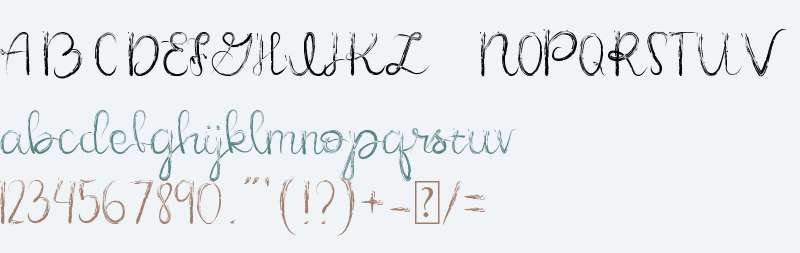 A B C D E F G H I J K L N O P Q R S T U V
abcdefghijklmnopqrstuv
1234567890."'(!?)+-?/=